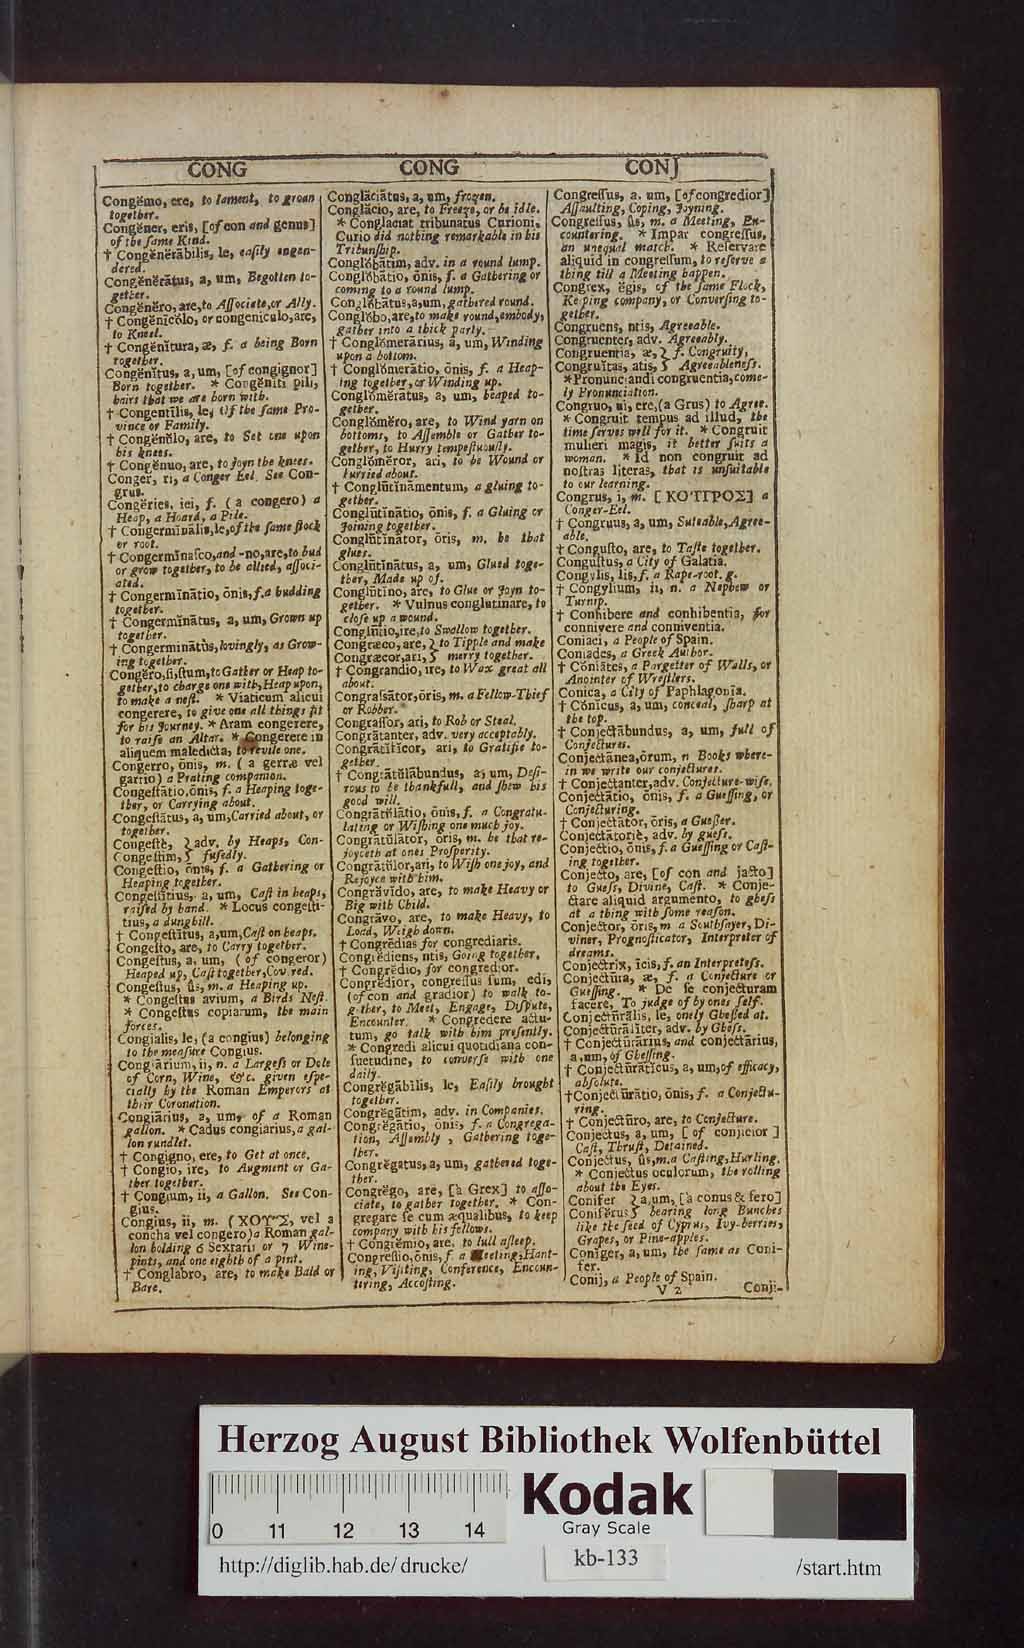 CONG
CONG
CONJ
Congĕmo, ere, to lament, to groan
together.
Congĕner, eris, [of con and genus]
of the ſame Kind.
† Congĕnĕrābilis, le, eaſily engen-
dered.
Congĕnĕrātus, a, um, Begotten to-
gether.
Congĕnĕro, are, to Aſſociate, or Ally.
† Congĕnĭcŏlo, or congeniculo, are,
to Kneel.
† Congĕnĭtura, æ, f. a being Born
together.
Congĕnĭtus, a, um, [of congignor]
Born together. * Congĕniti pili,
hairs that we are born with.
† Congentīlis, le, Of the ſame Pro-
vince or Family.
† Congĕnŏlo, are, to Set one upon
his knees.
† Congĕnuo, are, to Joyn the knees.
Conger, ri, a Conger Eel. See Con-
grus.
Congĕries, iei, f. (a congero) a
Heap, a Hoard, a Pile.
† Congermĭnālis, le, of the ſame ſtock
or root.
† Congermĭnaſco, and -no, are, to bud
or grow together, to be allied, aſſoci-
ated.
† Congermĭnātio, ōnis, f. a budding
together.
† Congermĭnātus, a, um, Grown up
together.
† Congerminātùs, lovingly, as Grow-
ing together.
Congĕro, ſi, ſtum, to Gather or Heap to-
gether, to charge one with, Heap upon,
to make a neſt. * Viaticum alicui
congerere, to give one all things fit
for his Journey. * Aram congerere,
to raiſe an Altar. * Congerere in
aliquem maledicta, to revile one.
Congerro, ōnis, m. (a gerræ vel
garrio) a Prating companion.
Congeſtātio, ōnis, f. a Heaping toge-
ther, or Carrying about.
Congeſtātus, a, um, Carried about, or
together.
Congeſtè, } adv. by Heaps, Con-
Congeſtim, } fuſedly.
Congeſtio, ōnis, f. a Gathering or
Heaping together.
Congeſtītius, a, um, Caſt in heaps,
raiſed by hand. * Locus congeſti-
tius, a dungbill.
† Congeſtītus, a, um, Caſt on heaps.
Congeſto, are, to Carry together.
Congeſtus, a, um, (of congeror)
Heaped up, Caſt together, Covred.
Congeſtus, ûs, m. a Heaping up.
* Congeſtus avium, a Birds Neſt.
* Congeſtus copiarum, the main
forces.
Congialis, le, (a congius) belonging
to the meaſure Congius.
Congiārium, ii, n. a Largeſs or Dole
of Corn, Wine, &c. given eſpe-
cially by the Roman Emperors at
their Coronation.
Congiārius, a, um, of a Roman
gallon. * Cadus congiarius, a gal-
lon rundlet.
† Congigno, ere, to Get at once.
† Congio, ire, to Augment or Ga-
ther together.
† Congium, ii, a Gallon. See Con-
gius.
Congius, ii, m. (ΧΟΥ῀Σ, vel a
concha vel congero) a Roman gal-
lon holding 6 Sextarii or 7 Wine-
pints, and one eighth of a pint.
† Conglabro, are, to make Bald or
Bare.
Conglăciātus, a, um, frozen.
Conglăcio, are, to Freeze, or be idle.
* Conglaciat tribunatus Curioni,
Curio did nothing remarkable in his
Tribunſhip.
Conglŏbātim, adv. in a round lump.
Conglŏbātio, ōnis, f. a Gathering or
coming to a round lump.
Conglŏbātus, a, um, gathered round.
Conglŏbo, are, to make round, embody,
gather into a thick party.
† Conglŏmerārius, a, um, Winding
upon a bottom.
† Conglŏmerātio, ōnis, f. a Heap-
ing together, or Winding up.
Conglŏmĕratus, a, um, heaped to-
gether.
Conglŏmĕro, are, to Wind yarn on
bottoms, to Aſſemble or Gather to-
gether, to Hurry tempeſtuouſly.
Conglŏmĕror, ari, to be Wound or
hurried about.
† Conglūtĭnāmentum, a gluing to-
gether.
Conglūtĭnātio, ōnis, f. a Gluing or
Joining together.
Conglūtĭnātor, ōris, m. he that
glues.
Conglūtĭnātus, a, um, Glued toge-
ther, Made up of.
Conglūtĭno, are, to Glue or Joyn to-
gether. * Vulnus conglutinare, to
cloſe up a wound.
Conglūtio, ire, to Swallow together.
Congræco, are, } to Tipple and make
Congræcor, ari, } merry together.
† Congrandio, ire, to Wax great all
about.
Congraſsātor, ōris, m. a Fellow-Thief
or Robber.
Congraſſor, ari, to Rob or Steal.
Congrātanter, adv. very acceptably.
Congrātĭfĭcor, ari, to Gratifie to-
gether.
† Congrātŭlābundus, a, um, Deſi-
rous to be thankfull, and ſhew his
good will.
Congrātŭlātio, ōnis, f. a Congratu-
lating or Wiſhing one much joy.
Congrātŭlātor, ōris, m. he that re-
joyceth at ones Proſperity.
Congrātŭlor, ari, to Wiſh one joy, and
Rejoyce with him.
Congrăvĭdo, are, to make Heavy or
Big with Child.
Congrăvo, are, to make Heavy, to
Load, Weigh down.
† Congrēdias for congrediaris.
Congrēdiens, ntis, Going together.
† Congrēdio, for congredior.
Congrēdior, congreſſus ſum, edi,
(of con and gradior) to walk to-
gether, to Meet, Engage, Diſpute,
Encounter. * Congredere actu-
tum, go talk with him preſently.
* Congredi alicui quotidiana con-
ſuetudine, to converſe with one
daily.
Congrĕgābilis, le, Eaſily brought
together.
Congrĕgātim, adv. in Companies.
Congrĕgātio, ōnis, f. a Congrega-
tion, Aſſembly, Gathering toge-
ther.
Congrĕgatus, a, um, gathered toge-
ther.
Congrĕgo, are, [à Grex] to aſſo-
ciate, to gather together. * Con-
gregare ſe cum æqualibus, to keep
company with his fellows.
† Congrĕmio, are, to lull aſleep.
Congreſſio, ōnis, f. a Meeting, Hant-
ing, Viſiting, Conference, Encoun-
tering, Accoſting.
Congreſſus, a, um, [of congredior]
Aſſaulting, Coping, Joyning.
Congreſſus, ûs, m. a Meeting, En-
countering. * Impar congreſſus,
an unequal match. * Reſervare
aliquid in congreſſum, to reſerve a
thing till a Meeting happen.
Congrex, ĕgis, of the ſame Flock,
Keeping company, or Converſing to-
gether.
Congruens, ntis, Agreeable.
Congruenter, adv. Agreeably.
Congruentia, æ, } f. Congruity,
Congruĭtas, atis, } Agreeableneſs.
* Pronunciandi congruentia, come-
ly Pronunciation.
Congruo, ui, ere, (a Grus) to Agree.
* Congruit tempus ad illud, the
time ſerves well for it. * Congruit
mulieri magis, it better ſuits a
woman. * Id non congruit ad
noſtras literas, that is unſuitable
to our learning.
Congrus, i, m. [ΚΟ'ΓΓΡΟΣ] a
Conger-Eel.
† Congruus, a, um, Suteable, Agree-
able.
† Conguſto, are, to Taſte together.
Conguſtus, a City of Galatia.
Congylis, lis, f. a Rape-root. g.
† Congylium, ii, n. a Nephew or
Turnip.
† Conhibere and conhibentia, for
connivere and conniventia.
Coniaci, a People of Spain.
Coniades, a Greek Author.
† Cōniātes, a Pargetter of Walls, or
Anointer of Wreſtlers.
Conica, a City of Paphlagonia.
† Cōnĭcus, a, um, conceal, ſharp at
the top.
† Conjectābundus, a, um, full of
Conjectures.
Conjectānea, ōrum, n Books where-
in we write our conjectures.
† Conjectanter, adv. Conjecture-wiſe.
Conjectātio, ōnis, f. a Gueſſing, or
Conjecturing.
† Conjectātor, ōris, a Gueſſer.
Conjectātoriè, adv. by gueſs.
Conjectio, ōnis, f. a Gueſſing or Caſt-
ing together.
Conjecto, are, [of con and jacto]
to Gueſs, Divine, Caſt. * Conje-
ctare aliquid argumento, to gheſs
at a thing with ſome reaſon.
Conjector, ōris, m a Southſayer, Di-
viner, Prognoſticator, Interpreter of
dreams.
Conjectrix, īcis, f. an Interpreteſs.
Conjectūra, æ, f. a Conjecture or
Gueſſing. * De ſe conjecturam
facere, To judge of by ones ſelf.
Conjectūrālis, le, onely Gheſſed at.
Conjectūrāliter, adv. by Gheſs.
† Conjectūrārius, and conjectārius,
a, um, of Gheſſing.
† Conjectūrātĭcus, a, um, of efficacy,
abſolute.
† Conjectūrātio, ōnis, f. a Conjectu-
ring.
† Conjectūro, are, to Conjecture.
Conjectus, a, um, [of conjicior]
Caſt, Thruſt, Detained.
Conjectus, ûs, m. a Caſting, Hurling.
* Conjectus oculorum, the rolling
about the Eyes.
Conifer } a, um, [à conus & fero]
Coniférus } bearing long Bunches
like the ſeed of Cyprus, Ivy-berries,
Grapes, or Pine-apples.
Coniger, a, um, the ſame as Coni-
fer.
Conij, a People of Spain.
V 2
Conji-
Herzog August Bibliothek Wolfenbüttel
Kodak
Gray Scale
0 11 12 13 14
kb-133
http://diglib.hab.de/ drucke/
/start.htm